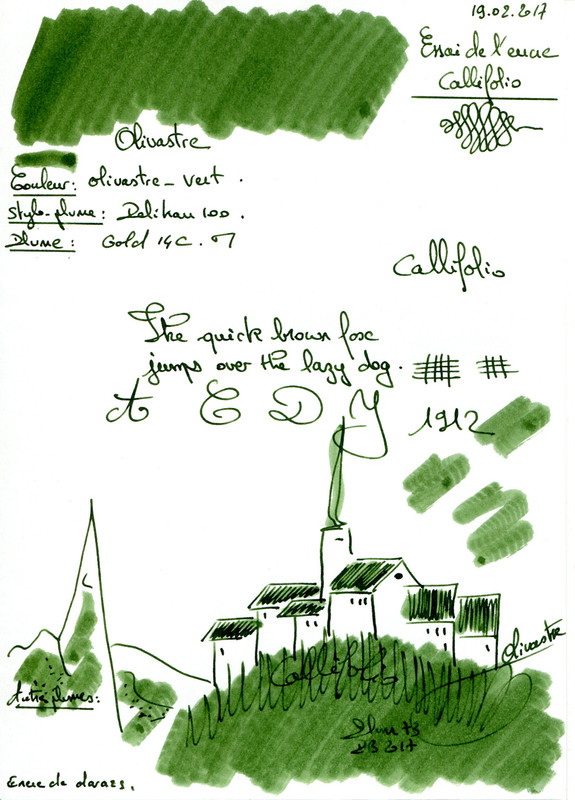 19.02.2017
Essai de l'encre
Callifolio
Olivastre
Couleur: olivastre - vert.
Stylo-plume: Delikan 100.
Plume: Gold 14C.
Callifolio
The quick brown fox
jumps over the lazy dog.
A E D Y 1912
Olivastre
Callifolio
Autres plumes:
2017
Encre de